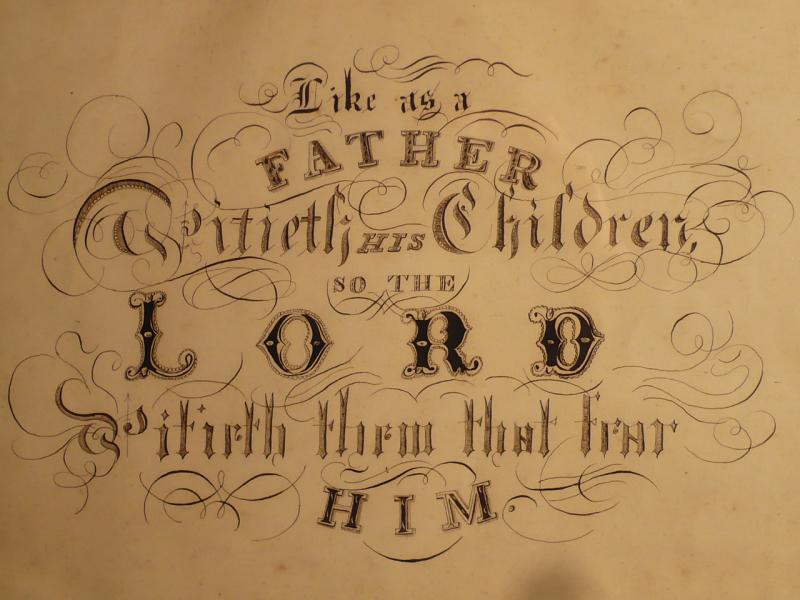 Like as a
FATHER
Pitieth HIS Children,
SO THE
LORD
Pitieth them that fear
HIM.